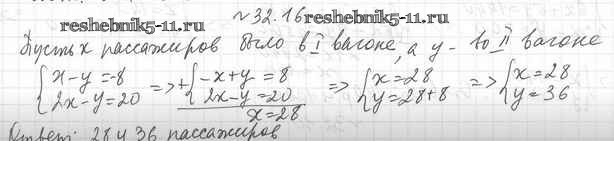 reshebnik5-11.ru
№32.16 reshebnik5-11.ru
Пусть x пассажиров было в I вагоне, а y - во II вагоне
{x-y=-8 => +{-x+y=8 => {x=28 => {x=28
{2x-y=20 {2x-y=20 {y=28+8 {y=36
x=28
Ответ: 28 и 36 пассажиров